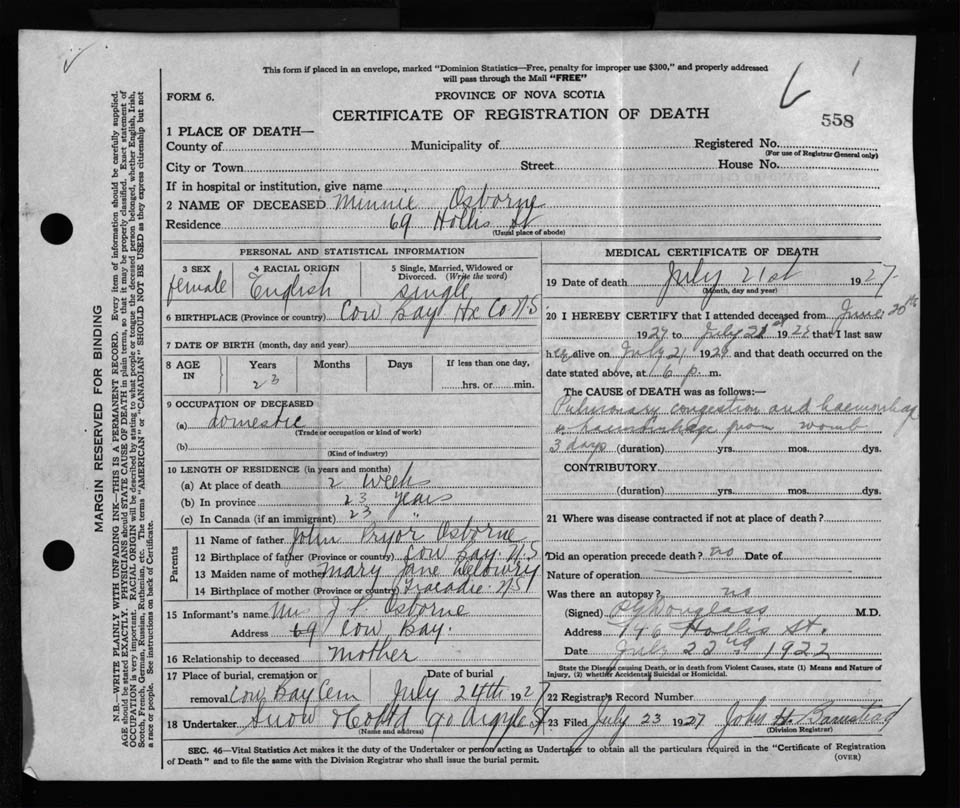 This form if placed in an envelope, marked "Dominion Statistics—Free, penalty for improper use $300," and properly addressed
will pass through the Mail "FREE"
FORM 6.
PROVINCE OF NOVA SCOTIA
CERTIFICATE OF REGISTRATION OF DEATH
558
1 PLACE OF DEATH—
County of Municipality of Registered No.
(For use of Registrar General only)
City or Town Street House No.
If in hospital or institution, give name
2 NAME OF DECEASED Minnie Osborne
Residence 69 Hollis St
(Usual place of abode)
MARGIN RESERVED FOR BINDING
N.B.—WRITE PLAINLY WITH UNFADING INK—THIS IS A PERMANENT RECORD. Every item of information should be carefully supplied.
AGE should be stated EXACTLY. PHYSICIANS should STATE CAUSE OF DEATH in plain terms, so that it may be properly classified. Exact statement of
OCCUPATION is very important. RACIAL ORIGIN will be described by stating to what people or tongue the deceased person belonged, whether English, Irish,
Scotch, French, German, Russian, Ruthenian, etc. The terms "AMERICAN" or "CANADIAN" SHOULD NOT BE USED as they express citizenship but not
a race or people. See instructions on back of Certificate.
PERSONAL AND STATISTICAL INFORMATION
3 SEX
female
4 RACIAL ORIGIN
English
5 Single, Married, Widowed or
Divorced. (Write the word)
single
6 BIRTHPLACE (Province or country) Cow Bay Hx Co N S
7 DATE OF BIRTH (month, day and year)
8 AGE
IN
Years
23
Months
Days
If less than one day,
hrs. or min.
9 OCCUPATION OF DECEASED
(a) domestic
(Trade or occupation or kind of work)
(b)
(Kind of industry)
10 LENGTH OF RESIDENCE (in years and months)
(a) At place of death 2 weeks
(b) In province 23 years
(c) In Canada (if an immigrant) 23 "
Parents
11 Name of father John Pryor Osborne
12 Birthplace of father (Province or country) Cow Bay N S
13 Maiden name of mother Mary Jane
14 Birthplace of mother (Province or country) Tracadie N S
15 Informant's name J. P. Osborne
Address 69 Cow Bay.
16 Relationship to deceased mother
17 Place of burial, cremation or Date of burial
removal Cow Bay Cem July 24th 1927
18 Undertaker Snow 90 Argyle St
(Name and address)
MEDICAL CERTIFICATE OF DEATH
19 Date of death July 21st 1927
(Month, day and year)
20 I HEREBY CERTIFY that I attended deceased from June 20th
1927 to July 21st 192 that I last saw
her alive on July 21 192 and that death occurred on the
date stated above, at 6 p. m.
The CAUSE OF DEATH was as follows:—
Pulmonary congestion and haemorrhage
haemorrhage from womb
3 days (duration) yrs. mos. dys.
CONTRIBUTORY
(duration) yrs. mos. dys.
21 Where was disease contracted if not at place of death?
Did an operation precede death? no Date of
Nature of operation
Was there an autopsy? no
(Signed) M.D.
Address Hollis St.
Date July 22nd 192
State the Disease causing Death, or in death from Violent Causes, state (1) Means and Nature of
Injury, (2) whether Accidental, Suicidal or Homicidal.
22 Registrar's Record Number
23 Filed July 23 1927 John H. Barnstead
(Division Registrar)
SEC. 46—Vital Statistics Act makes it the duty of the Undertaker or person acting as Undertaker to obtain all the particulars required in the "Certificate of Registration
of Death" and to file the same with the Division Registrar who shall issue the burial permit.
(OVER)